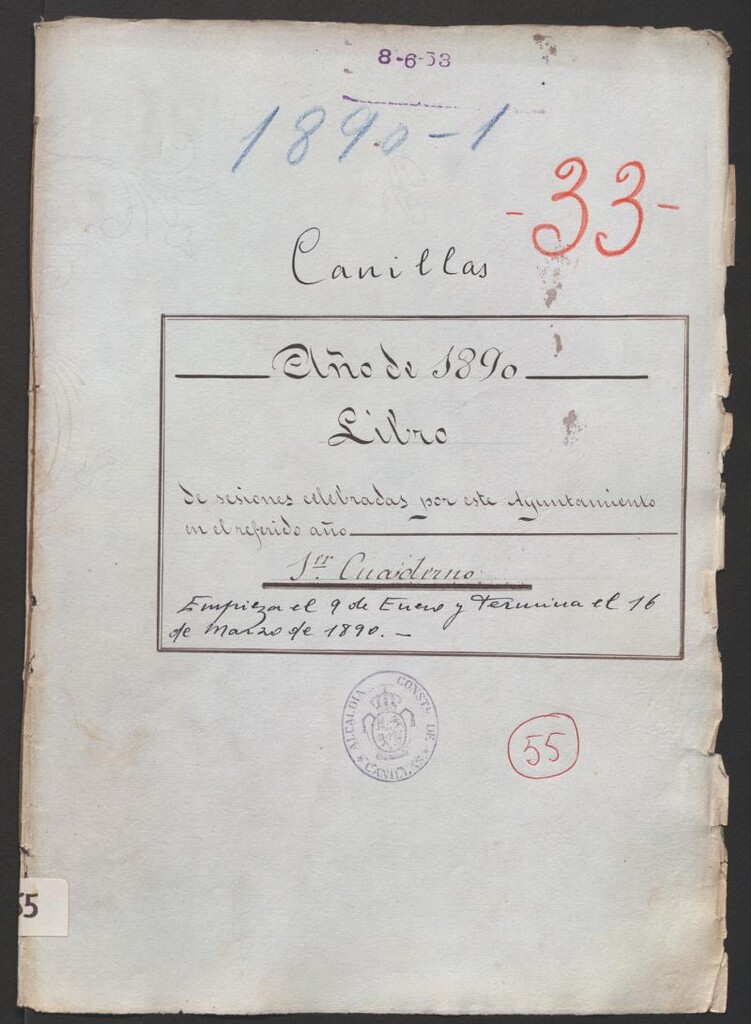 8-6-53
1890-1
-33-
Canillas
Año de 1890
Libro
de sesiones celebradas por este Ayuntamiento
en el referido año
1er. Cuaderno
Empieza el 9 de Enero y termina el 16
de Marzo de 1890. -
ALCALDIA CONSTL. DE
* CANILLAS *
55
55